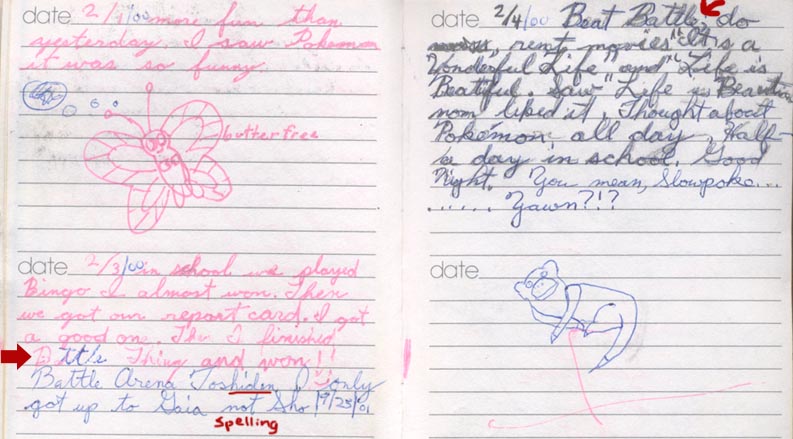 date 2/1/00 more fun than
yesterday. I saw Pokemon
it was so funny.
butterfree
date 2/3/00 in school we played
Bingo I almost won. Then
we got our report card. I got
a good one. Then I finished
Thing and won!!
Battle Arena Toshiden I only
got up to Gaia not Sho 9/23/01
Spelling
date 2/4/00 Beat Battle, do
rent movies "It's a
Wonderful Life" and "Life is
Beatiful. Saw "Life is
mom liked it. Thought about
Pokemon all day. Half-
a day in school. Good
Night. You mean, Slowpoke...
...... Yawn?!?
date